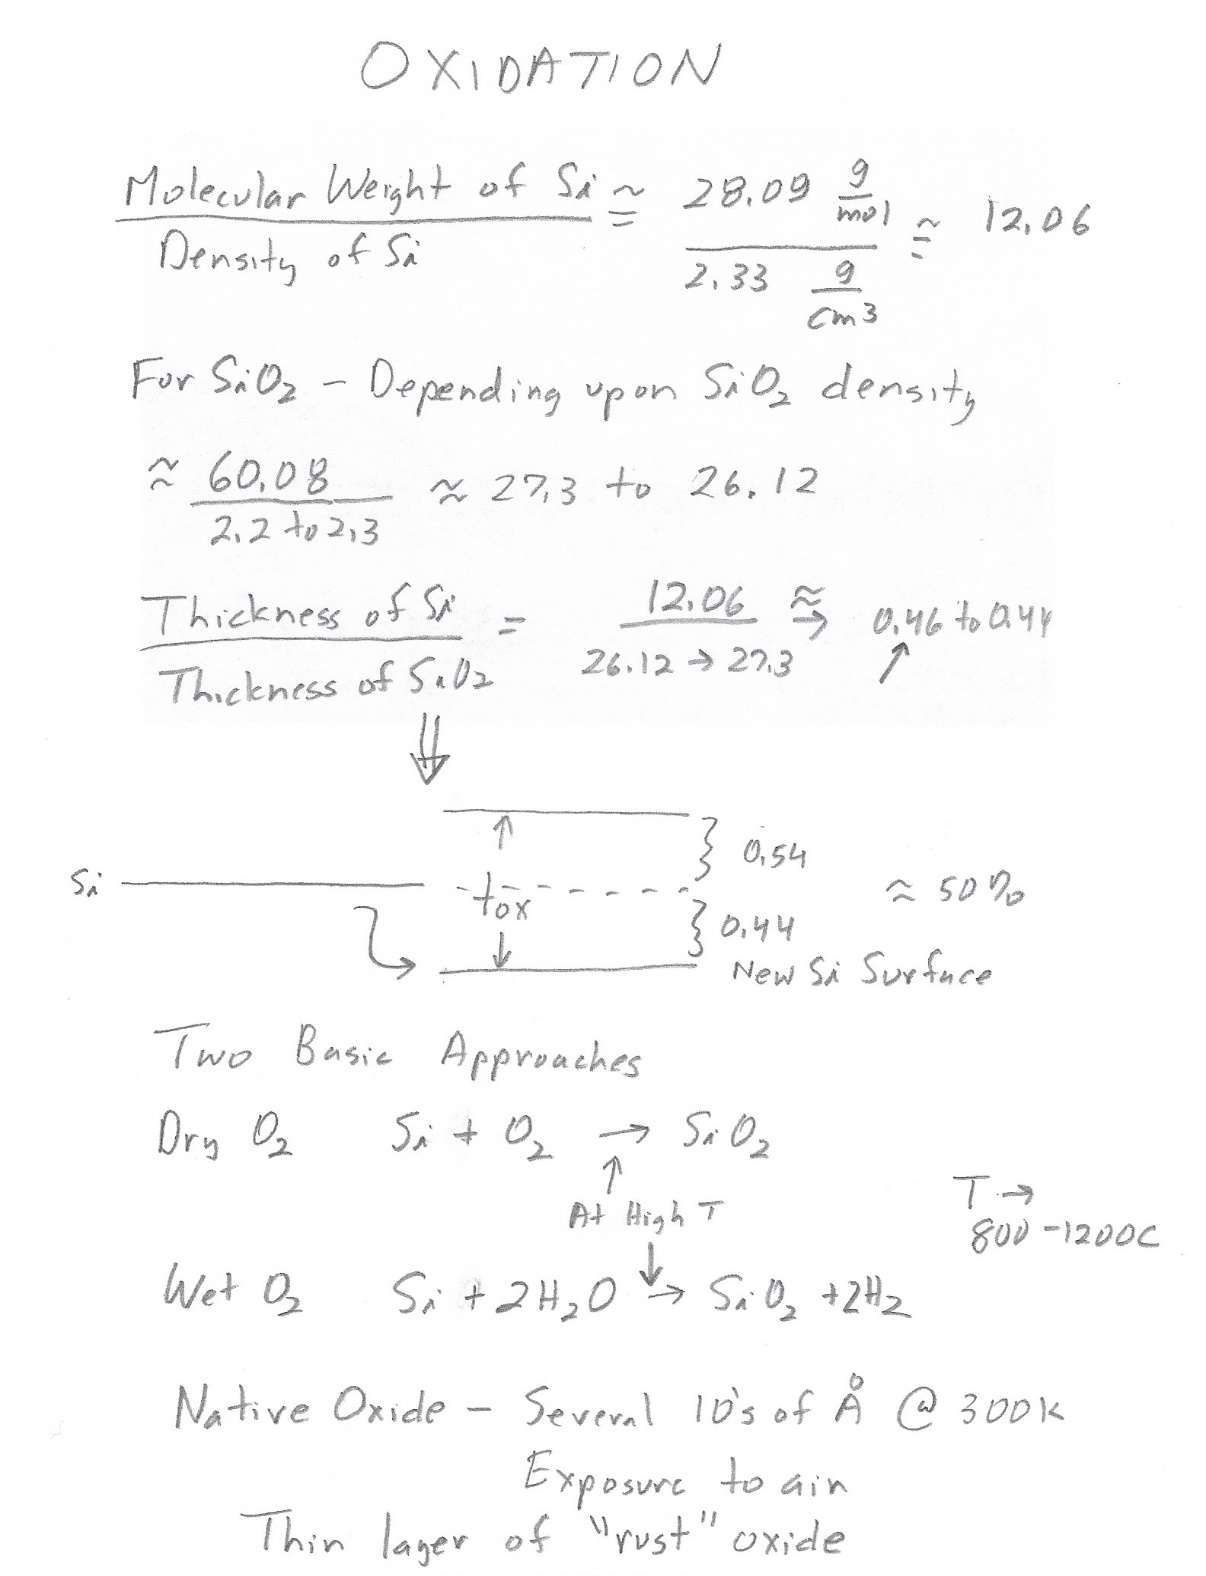 OXIDATION
Molecular Weight of Si ≅ 28.09 g/mol ≅ 12.06
Density of Si 2.33 g/cm3
For SiO2 - Depending upon SiO2 density
≈ 60.08 ≈ 27.3 to 26.12
2.2 to 2.3
Thickness of Si = 12.06 ≈→ 0.46 to 0.44
Thickness of SiO2 26.12 → 27.3 ↑
⇓
↑ } 0.54
Si tox ≈ 50%
↓ } 0.44
New Si Surface
Two Basic Approaches
Dry O2 Si + O2 → SiO2
↑
At High T T →
↓ 800-1200C
Wet O2 Si + 2H2O → SiO2 + 2H2
Native Oxide - Several 10's of Å @ 300K
Exposure to air
Thin layer of "rust" oxide